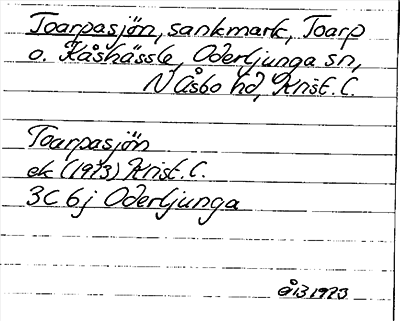 Toarpasjön, sankmark, Toarp
o. Kåshässle, Oderljunga sn,
N Åsbo hd, Krist. C.
Toarpasjön
ek (1973) Krist. C.
3C 6j Oderljunga
1973